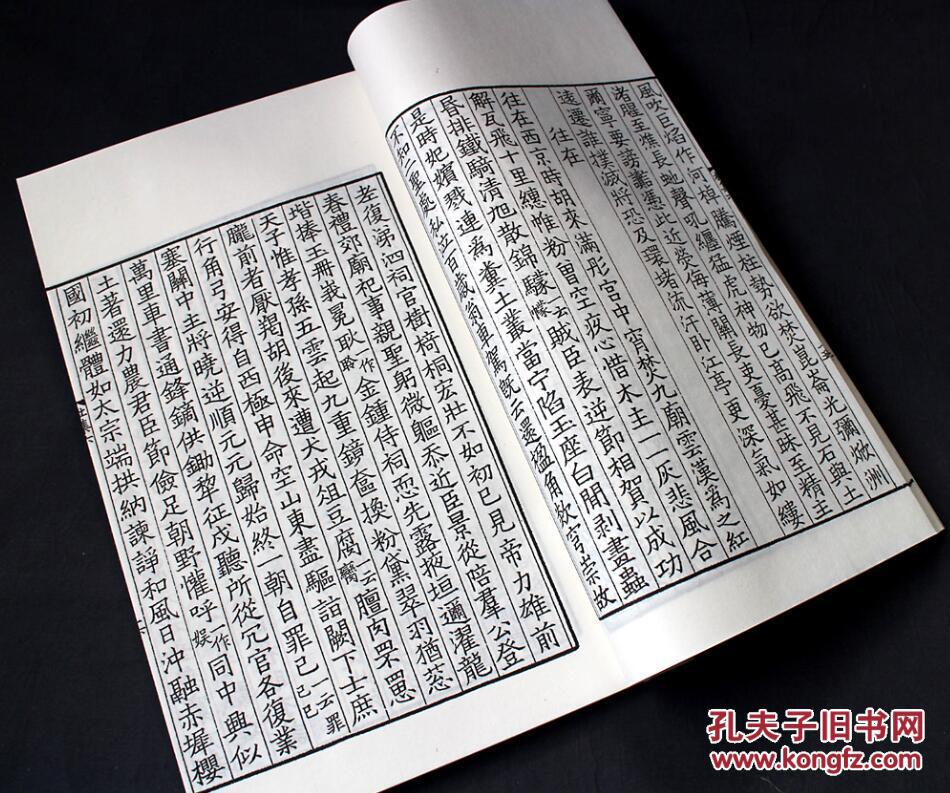 風吹巨焰作河棹騰煙柱勢欲焚崑崙光彌焮洲
渚腥至燋長虵聲吼纏猛虎神物已高飛不見石與土
爾寧要謗讟憑此近熒侮薄關長吏憂甚昧至精主
遠遷誰撲滅將恐及環堵流汗卧江亭更深氣如縷
往在
往在西京時胡來滿彤宮中宵焚九廟雲漢為之紅
解瓦飛十里繐帷粉曽空疚心惜木主一一灰悲風合
昬排鐵騎清旭散錦驟一云幪賊臣表逆節相賀以成功
是時妃嬪戮連為糞土叢當宁陷玉座白閒剥畫蟲
不知二聖處私泣百歲翁車駕既云還楹角欻穹崇故
老復涕泗祠官樹椅桐宏壯不如初已見帝力雄前
春禮郊廟祀事親聖躬微軀忝近臣景從陪羣公登
堦捧玉冊峩冕耿作聆金鍾侍祠恧先露掖垣邇濯龍
天子惟孝孫五雲起九重鏡奩換粉黛翠羽猶蔥
朧前者厭羯胡後來遭犬戎俎豆腐一云膻肉罘罳
行角弓安得自西極申命空山東盡驅詣闕下士庶
塞關中主將曉逆順元元歸始終一朝自罪己一云罪己
萬里車書通鋒鏑供鋤犂征戍聽所從冗官各復業
土著還力農君臣節儉足朝野懽呼作娱同中興似
國初繼體如太宗端拱納諫諍和風日沖融赤墀櫻
孔夫子旧书网
www.kongfz.com